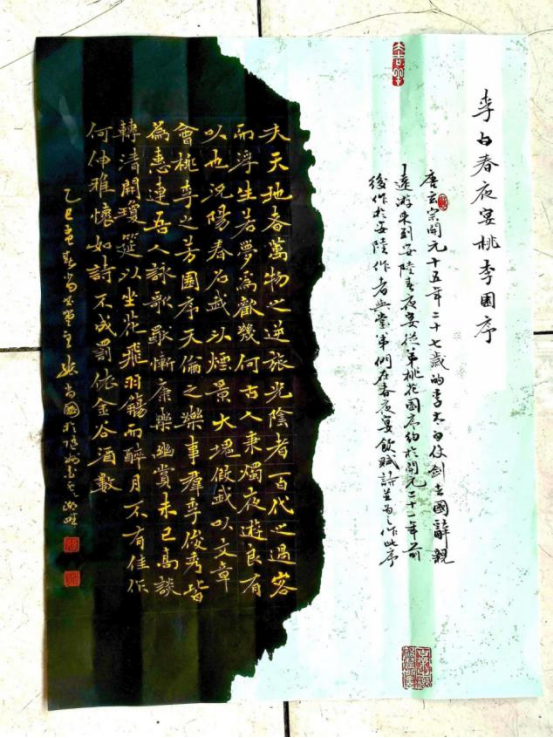 李白春夜宴桃李園序
唐玄宗開元十五年二十七歲的李太白仗劍去國辭親
遠游來到安陸春夜宴從弟桃花園序約於開元二十一年前
後作於安陸作者與堂弟們在春夜宴飲賦詩並為之作此序
夫天地者萬物之逆旅光陰者百代之過客
而浮生若夢為歡幾何古人秉燭夜遊良有
以也況陽春召我以煙景大塊假我以文章
會桃李之芳園序天倫之樂事群季俊秀皆
為惠連吾人詠歌獨慚康樂幽賞未已高談
轉清開瓊筵以坐花飛羽觴而醉月不有佳作
何伸雅懷如詩不成罰依金谷酒數
乙巳孟春